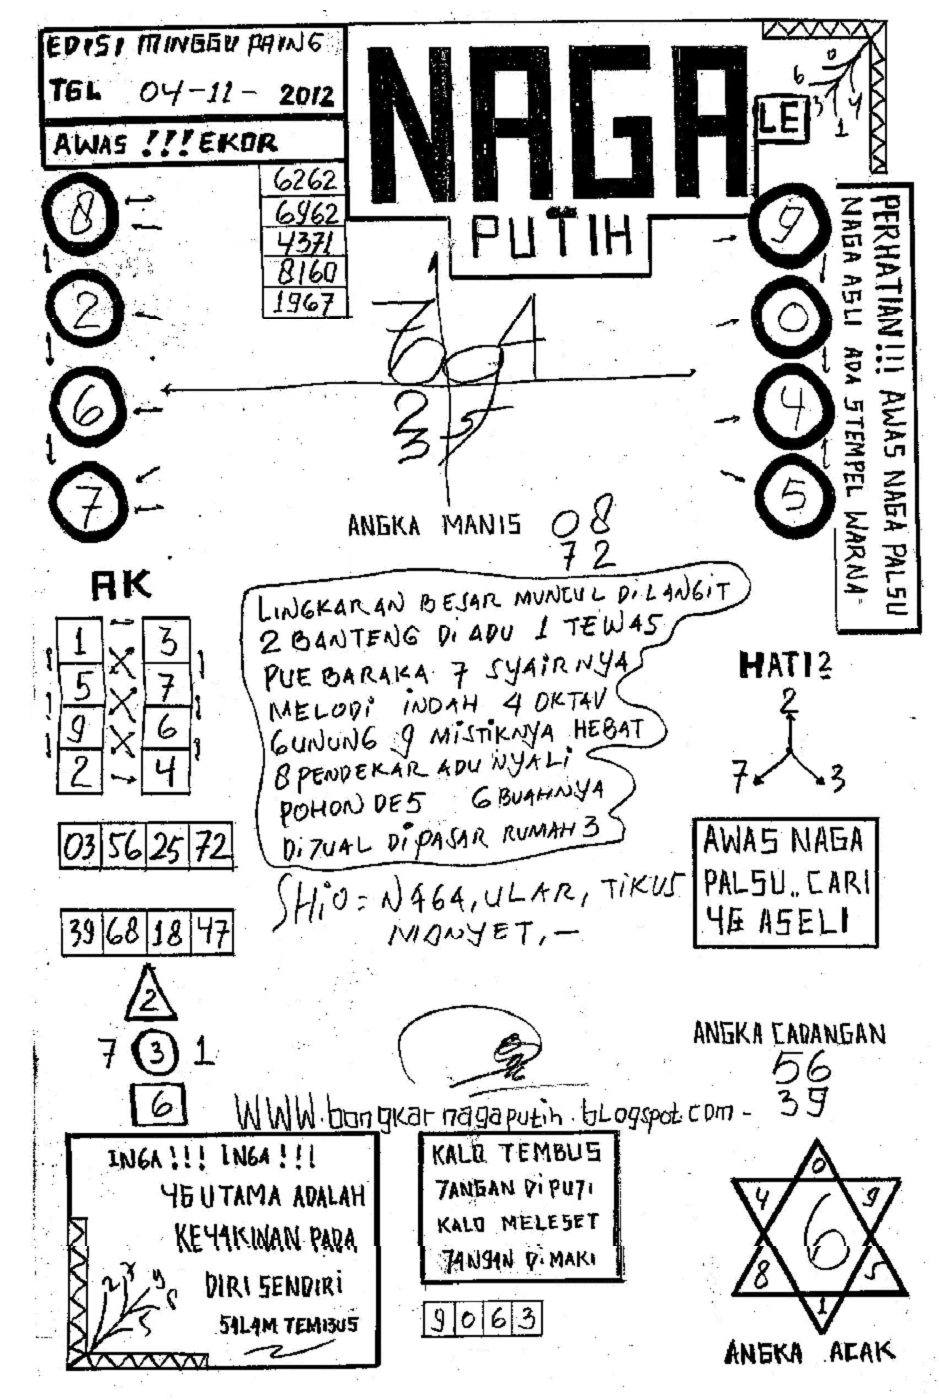 EDISI MINGGU PAING
TGL 04-11-2012
AWAS !!! EKOR
NAGA
PUTIH
LE
0
6
3
4
1
6262
6962
4371
8160
1967
8
2
6
7
9
0
4
5
PERHATIAN!!! AWAS NAGA PALSU
NAGA ASLI ADA STEMPEL WARNA-
7
6 0 4
2
3 5
ANGKA MANIS 08
72
AK
1 3
5 7
9 6
2 4
03 56 25 72
39 68 18 47
LINGKARAN BESAR MUNCUL DILANGIT
2 BANTENG DI ADU 1 TEWAS
PUE BARAKA 7 SYAIRNYA
MELODI INDAH 4 OKTAV
GUNUNG 9 MISTIKNYA HEBAT
8 PENDEKAR ADU NYALI
POHON DE5 6 BUAHNYA
DI7UAL DIPASAR RUMAH 3
SHIO = NAGA, ULAR, TIKUS
MONYET, -
HATI2
2
7 3
AWAS NAGA
PALSU.. CARI
4G ASELI
2
7 3 1
6
ANGKA CADANGAN
56
39
WWW.bongkarnagaputih.blogspot.com -
INGA !!! INGA !!!
4G UTAMA ADALAH
KE4AKINAN PADA
DIRI SENDIRI
SALAM TEMBUS
KALO TEMBUS
7ANGAN DIPU7I
KALO MELESET
7ANGAN DIMAKI
9 0 6 3
0
4 9
6
8 5
1
ANGKA ACAK